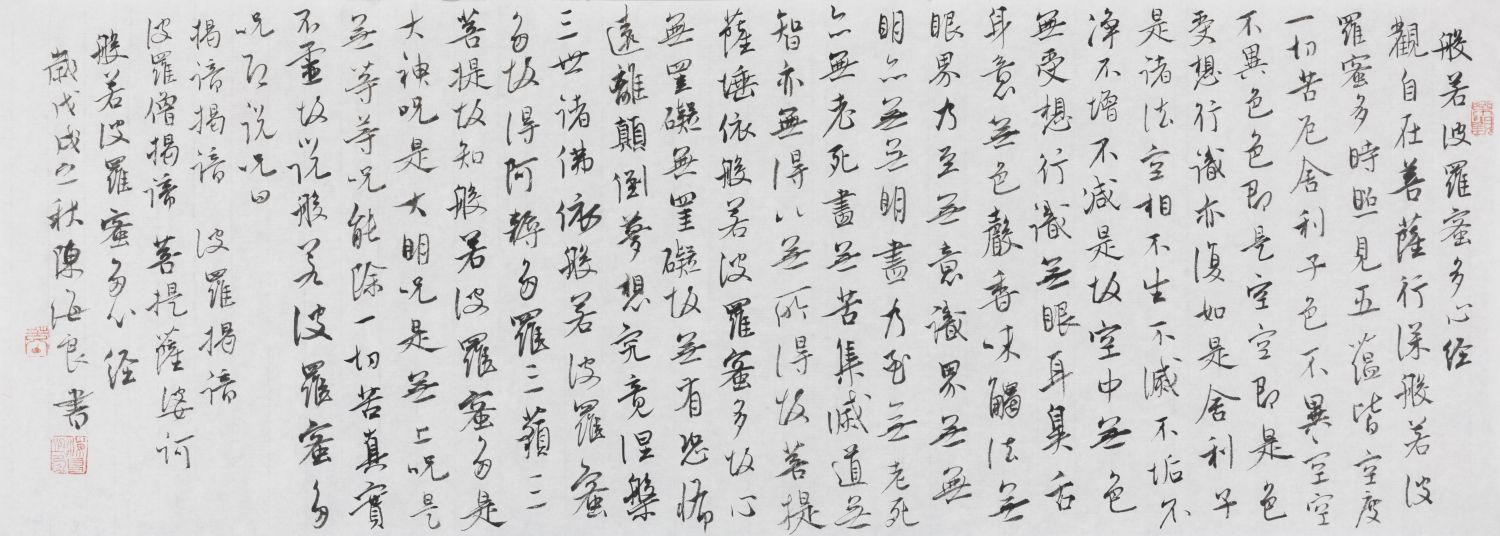 般若波羅蜜多心经
觀自在菩薩行深般若波
羅蜜多時照見五蕴皆空度
一切苦厄舍利子色不異空空
不異色色即是空空即是色
受想行識亦復如是舍利子
是诸法空相不生不滅不垢不
净不增不减是故空中無色
無受想行識無眼耳鼻舌
身意無色聲香味觸法無
眼界乃至無意識界無無
明亦無無明盡乃至無老死
亦無老死盡無苦集滅道無
智亦無得以無所得故菩提
薩埵依般若波羅蜜多故心
無罣礙無罣礙故無有恐怖
遠離顛倒夢想究竟涅槃
三世诸佛依般若波羅蜜
多故得阿耨多羅三藐三
菩提故知般若波羅蜜多是
大神咒是大明咒是無上咒是
無等等咒能除一切苦真實
不虚故説般若波羅蜜多
咒即说咒曰
揭谛揭谛 波羅揭谛
波羅僧揭谛 菩提薩婆訶
般若波羅蜜多心经
歲戊戌之秋陳海良書